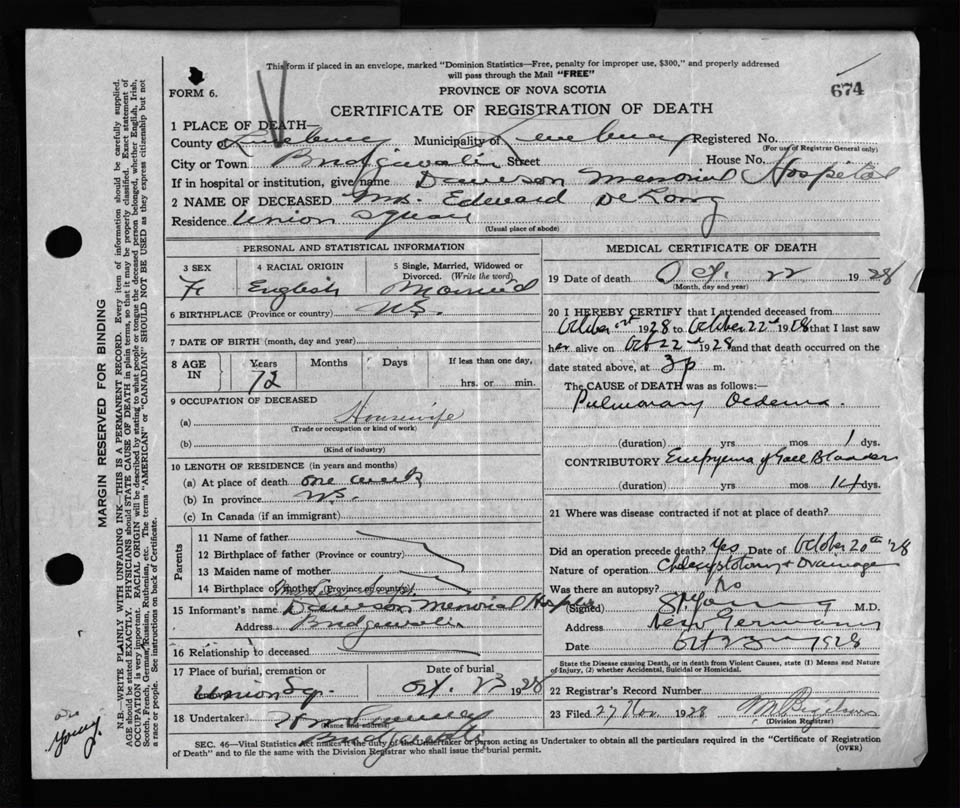 This form if placed in an envelope, marked "Dominion Statistics—Free, penalty for improper use, $300," and properly addressed
will pass through the Mail "FREE"
FORM 6.
PROVINCE OF NOVA SCOTIA
674
CERTIFICATE OF REGISTRATION OF DEATH
1 PLACE OF DEATH—
County of Lunenburg Municipality of Lunenburg Registered No.
(For use of Registrar General only)
City or Town Bridgewater Street House No.
If in hospital or institution, give name Dawson Memorial Hospital
2 NAME OF DECEASED Mrs. Edward DeLong
Residence Union Square
(Usual place of abode)
PERSONAL AND STATISTICAL INFORMATION
3 SEX 4 RACIAL ORIGIN 5 Single, Married, Widowed or
Divorced. (Write the word)
F English Married
6 BIRTHPLACE (Province or country) N.S.
7 DATE OF BIRTH (month, day and year)
8 AGE IN Years Months Days If less than one day,
72 hrs. or min.
9 OCCUPATION OF DECEASED
(a) Housewife
(Trade or occupation or kind of work)
(b)
(Kind of industry)
10 LENGTH OF RESIDENCE (in years and months)
(a) At place of death one week
(b) In province N.S.
(c) In Canada (if an immigrant)
Parents
11 Name of father
12 Birthplace of father (Province or country)
13 Maiden name of mother
14 Birthplace of mother (Province or country)
15 Informant's name Dawson Memorial Hospital
Address Bridgewater
16 Relationship to deceased
17 Place of burial, cremation or Date of burial
Union Sq. Oct. 23 1928
18 Undertaker
(Name and address)
Bridgewater
MEDICAL CERTIFICATE OF DEATH
19 Date of death Oct. 22 1928
(Month, day and year)
20 I HEREBY CERTIFY that I attended deceased from
October 1928 to October 22nd 1928 that I last saw
her alive on Oct 22nd 1928 and that death occurred on
date stated above, at 3 p m.
The CAUSE of DEATH was as follows:—
Pulmonary Oedema.
(duration) yrs mos 1 dys.
CONTRIBUTORY Empyema of Gall Bladder
(duration) yrs mos 14 dys.
21 Where was disease contracted if not at place of death?
Did an operation precede death? Yes Date of October 20th '28
Nature of operation Cholecystotomy + Drainage
Was there an autopsy? No
(Signed) Young M.D.
Address New Germany
Date Oct 23 1928
State the Disease causing Death, or in death from Violent Causes, state (1) Means and Nature
of Injury, (2) whether Accidental, Suicidal or Homicidal.
22 Registrar's Record Number
23 Filed 27 Nov 1928
(Division Registrar)
SEC. 46—Vital Statistics Act makes it the duty of the Undertaker or person acting as Undertaker to obtain all the particulars required in the "Certificate of Registration
of Death" and to file the same with the Division Registrar who shall issue the burial permit.
(OVER)
MARGIN RESERVED FOR BINDING
N.B.—WRITE PLAINLY WITH UNFADING INK—THIS IS A PERMANENT RECORD. Every item of information should be carefully supplied.
AGE should be stated EXACTLY. PHYSICIANS should STATE CAUSE OF DEATH in plain terms, so that it may be properly classified. Exact statement of
OCCUPATION is very important. RACIAL ORIGIN will be described by stating to what people or tongue the deceased person belonged, whether English, Irish,
Scotch, French, German, Russian, Ruthenian, etc. The terms "AMERICAN" or "CANADIAN" SHOULD NOT BE USED as they express citizenship but not
a race or people. See instructions on back of Certificate.
Young.